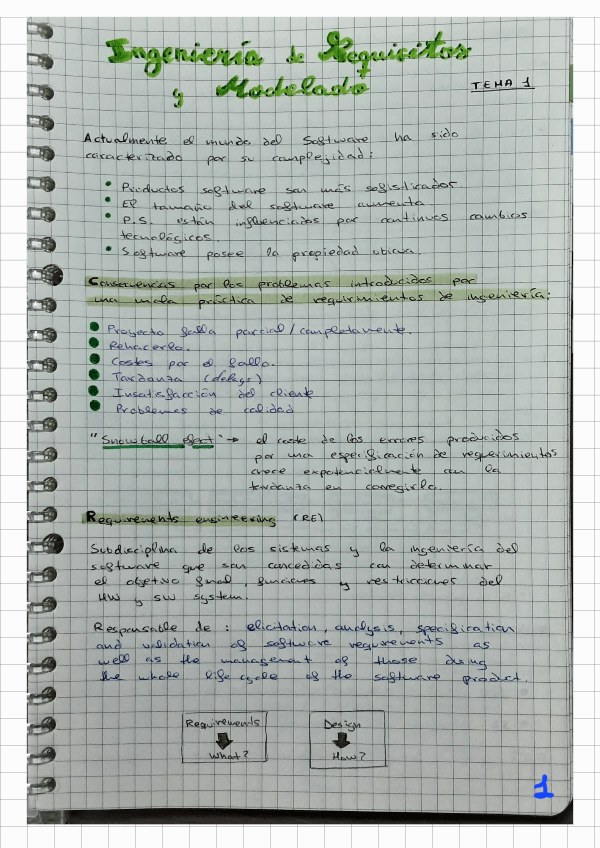 Ingeniería de Requisitos
y Modelado
TEMA 1
Actualmente el mundo del Software ha sido
caracterizado por su complejidad:
• Productos software son más sofisticados
• El tamaño del software aumenta
• P.S. están influenciados por continuos cambios
tecnológicos.
• Software posee la propiedad ubicua.
Consecuencias por los problemas introducidos por
una mala práctica de requirimientos de ingeniería:
• Proyecto falla parcial/completamente.
• Rehacerlo.
• Costes por el fallo.
• Tardanza (delays)
• Insatisfacción del cliente
• Problemas de calidad
"Snowball efect" → el coste de los errores producidos
por una especificación de requerimientos
crece expotencialmente con la
tardanza en corregirlo.
Requirements engineering (RE)
Subdisciplina de los sistemas y la ingeniería del
software que son concedidas con determinar
el objetivo final, funciones y restricciones del
HW y SW system.
Responsable de: elicitation, analysis, specification
and validation of software requirements as
well as the management of those during
the whole life cycle of the software product.
Requirements Design
What? How?
1